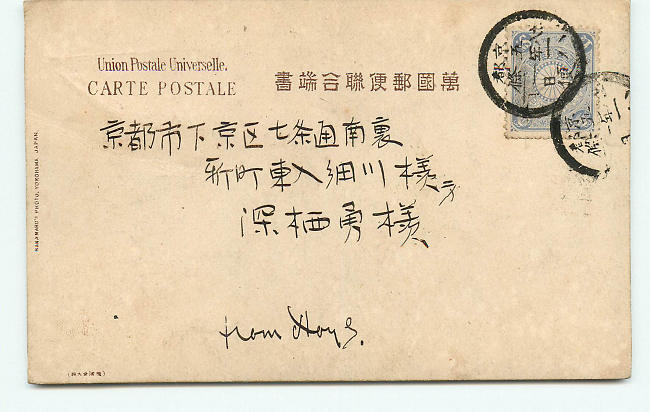 Union Postale Universelle.
CARTE POSTALE
書端合聯便郵國萬
京都市下京区七条通南裏
新町東入細川様方
深栖勇様
from
KANAMARU'S PHOTO, YOKOHAMA, JAPAN.
京都
五条
一日